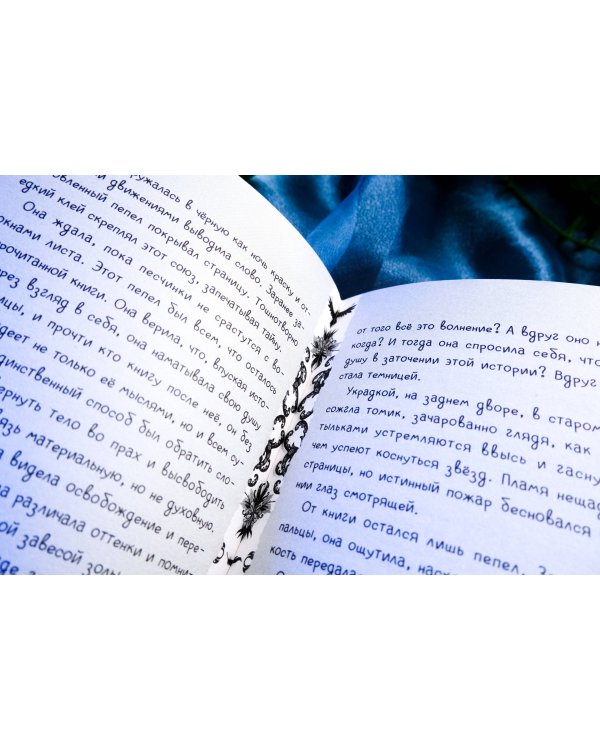 ружалась в чёрную как ночь краску и от
движениями выводила слово. Заранее за-
пепел покрывал страницу. Тошнотворно
едкий клей скреплял этот союз, запечатывая тайну
Она ждала, пока песчинки не срастутся с во-
локнами листа. Этот пепел был всем, что осталось
прочитанной книги. Она верила, что, впуская исто-
рез взгляд в себя, она наматывала свою душу
цы, и прочти кто книгу после неё, он без
деет не только её мыслями, но и всем су-
динственный способ был обратить сло-
ернуть тело во прах и высвободить
язь материальную, но не духовную.
а видела освобождение и пере-
на различала оттенки и помни
ой завесой золы
от того всё это волнение? А вдруг оно н
когда? И тогда она спросила себя, что
душу в заточении этой истории? Вдруг
стала темницей.
Украдкой, на заднем дворе, в старом
сожгла томик, зачарованно глядя, как
тыльками устремляются ввысь и гасну
чем успеют коснуться звёзд. Пламя нещад
страницы, но истинный пожар бесновался
нии глаз смотрящей.
От книги остался лишь пепел. За
пальцы, она ощутила, наск
кость передала